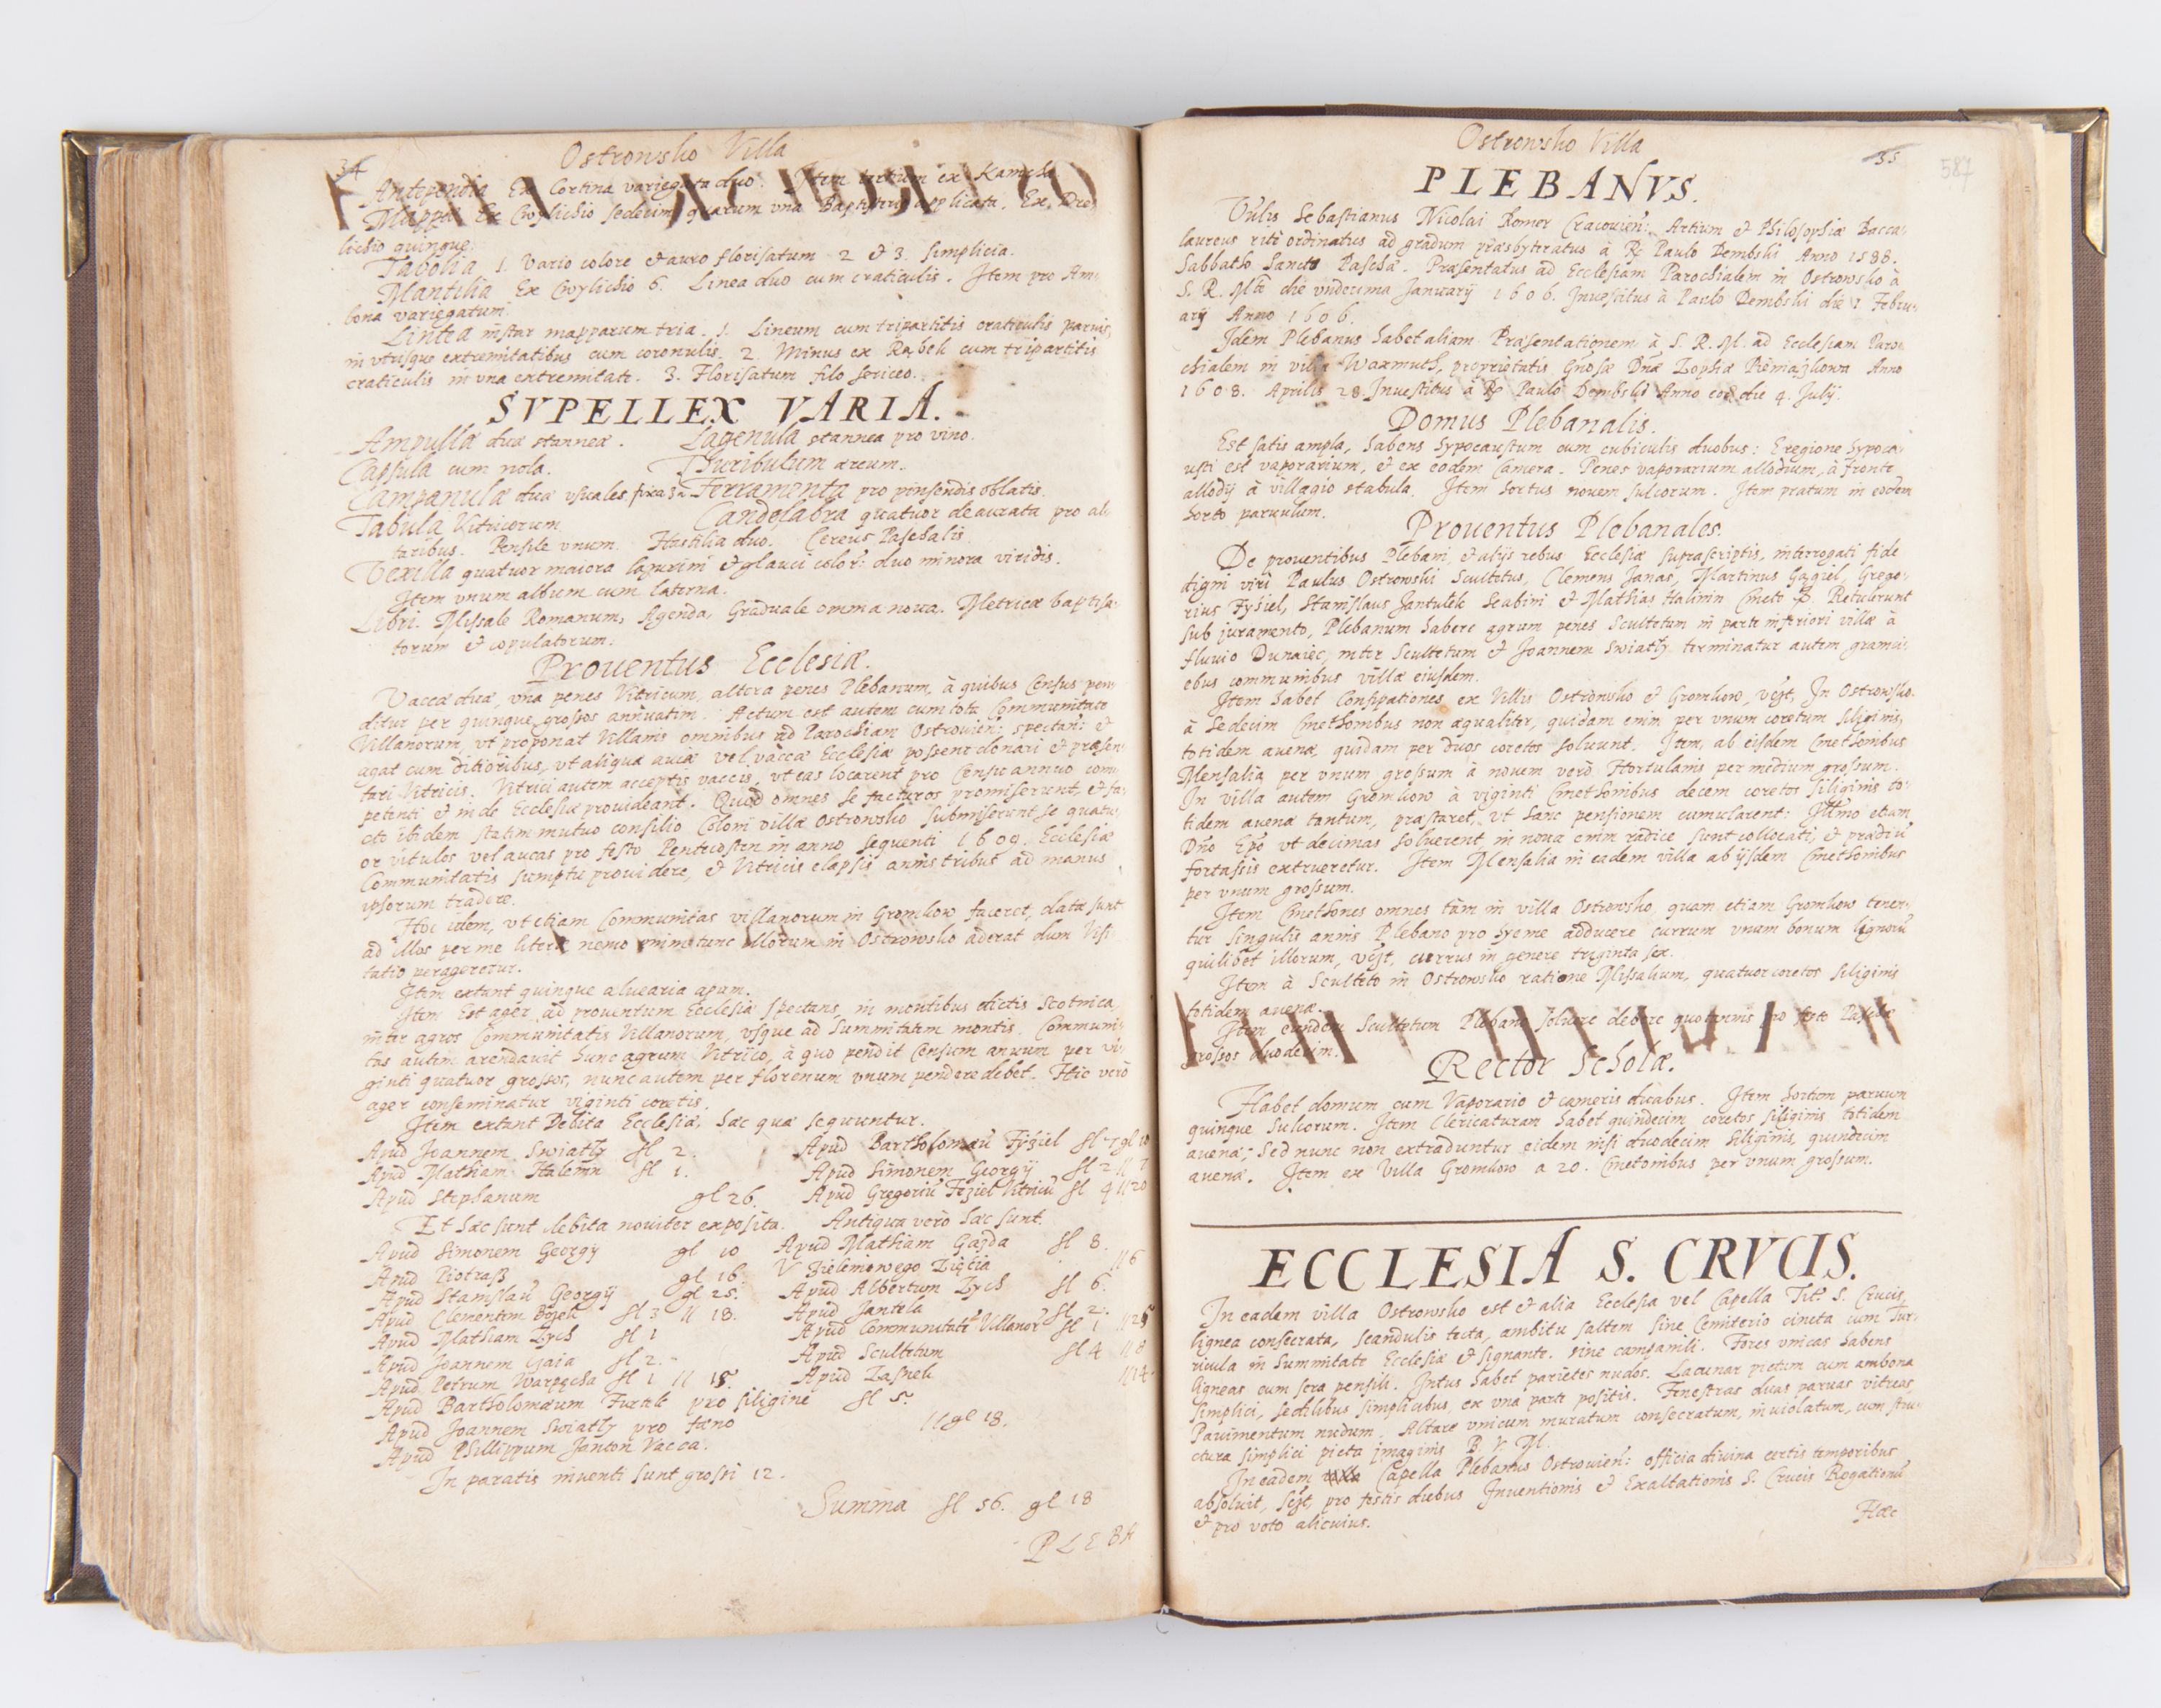 34
Ostrowsko Villa
Antependia Ex Cortina variegata duo. Item tertium ex Kamcha
Mappæ Ex Cwylichio sedecim, quarum vna Baptisterio applicata. Ex Dre-
lichio quinque.
Tabolia 1. Vario colore et auro florisatum 2 et 3. simplicia.
Mantilia Ex Cwylichio 6. Linea duo cum craticulis. Item pro Am-
bona variegatum.
Lintea instar mapparum tria. 1. Lineum cum tripartitis craticulis paruis,
in vtrisque extremitatibus cum coronulis. 2. Minus ex Rąbek cum tripartitis
craticulis in vna extremitate. 3. Florisatum filo sericeo.
SVPELLEX VARIA.
Ampullæ duæ stanneæ. Lagenula stannea pro vino.
Capsula cum nola. Thuribulum æreum.
Campanulæ duæ vsuales, fixa 3a Ferramenta pro pinsendis oblatis.
Tabula Vitricorum Candelabra quatuor deaurata pro al-
taribus. Pensile vnum. Hastilia duo. Cereus Paschalis.
Vexilla quatuor maiora lazurini et glauci color: duo minora viridis.
Item vnum album cum laterna.
Libri. Missale Romanum, Agenda, Graduale omnia noua. Metricæ baptisa-
torum et copulatorum.
Prouentus Ecclesiæ.
Vaccæ duæ, vna penes Vitricum, altera penes Plebanum, à quibus Census pen-
ditur per quinque grossos annuatim. Actum est autem cum tota Communitate
Villanorum, vt proponat Villanis omnibus ad Parochiam Ostrouien: spectan: et
agat cum ditioribus, vt aliqua aucæ vel vaccæ Ecclesiæ possent donari et præsen-
tari Vitricis. Vitrici autem acceptis vaccis, vt eas locarent pro Censu annuo com-
petenti et inde Ecclesiæ prouideant. Quod omnes se facturos promiserunt, et fa-
cto ibidem statim mutuo consilio Coloni villæ Ostrowsko submiserunt se quatu-
or vitulos vel aucas pro festo Pentecosten in anno sequenti 1609. Ecclesiæ
Communitatis sumptu prouidere, et Vitricis elapsis annis tribus ad manus
ipsorum tradere.
Hoc idem, vt etiam Communitas villanorum in Gromkow faceret, datæ sunt
ad illos per me literæ nemo enim tunc illorum in Ostrowsko aderat dum Visi-
tatio perageretur.
Item extant quinque aluearia apum.
Item Est ager ad prouentum Ecclesiæ spectans, in montibus dictis Stotnica,
inter agros Communitatis Villanorum, vsque ad summitatem montis. Communi-
tas autem arendauit hunc agrum Vitrico, à quo pendit Censum anuum per vi-
ginti quatuor grossos, nunc autem per florenum vnum pendere debet. Hic verò
ager conseminatur viginti coretis.
Item extant Debita Ecclesiæ, hæc quæ sequuntur.
Apud Joannem Swiatły fl 2. Apud Bartholomæu Fyziel fl 7 gl 10
Apud Mathiam Halemin fl 1. Apud Simonem Georgij fl 2 // 7
Apud Stephanum gl 26. Apud Gregoriu Feziel Vitricu fl 9 // 20
Et hæc sunt debita nouiter exposita. Antiqua verò hæc sunt.
Apud Simonem Georgij gl 10 Apud Mathiam Gajda fl 8.
Apud Piotraß gl 16. V Zielemowego Zięcia // 6
Apud Stanislau Georgij gl 25. Apud Albertum Zych fl 6.
Apud Clementem Bzek fl 3 // 18. Apud Jantela fl 2.
Apud Mathiam Zych fl 1 Apud Communitate Villanor fl 1 // 25
Apud Joannem Gaia fl 2. Apud Scultetum fl 4 // 8
Apud Petrum Warpęcha fl 1 // 15. Apud Zasnek // 14.
Apud Bartholomæum Furtek pro siligine fl 5.
Apud Joannem Swiatły pro fæno // gl 18.
Apud Phillippum Janton Vacca.
In paratis inuenti sunt grossi 12.
Summa fl 56. gl 18
PLEBA
Ostrowsko Villa
35
587
PLEBANVS.
Sebastianus Nicolai Romer Cracouien: Artium et Philosophiæ Bacca-
laureus ritè ordinatus ad gradum præsbyteratus à Paulo Dembski Anno 1588.
Sabbatho Sancto Paschæ. Præsentatus ad Ecclesiam Parochialem in Ostrowsko à
S. R. Mte die vndecima Januarij 1606. Inuestitus à Paulo Dembski die 1 Febru-
arij Anno 1606.
Idem Plebanus habet aliam Præsentationem à S. R. M. ad Ecclesiam Paro-
chialem in villa Waxmuth, proprietatis Gnosæ Dnæ Zophiæ Anno
1608. Aprilis 28 Inuestitus à Paulo Dembski Anno eod. die 9. Julij.
Domus Plebanalis.
Est satis ampla, habens hypocaustum cum cubiculis duobus: E regione hypoca-
usti est vaporarium, et ex eodem Camera. Penes vaporarium allodium, à fronte
allodij à villagio stabula. Item hortus nouem sulcorum. Item pratum in eodem
horto paruulum.
Prouentus Plebanales.
De prouentibus Plebani et alijs rebus Ecclesiæ suprascriptis, interrogati fide
digni viri Paulus Ostrowski Scultetus, Clemens Janas, Martinus Gązgiel, Grego-
rius Fyziel, Stanislaus Jantulek Scabini et Mathias Halinin Cmeto. Retulerunt
sub juramento, Plebanum habere agrum penes Scultetum in parte inferiori villæ à
fluuio Dunaiec, inter Scultetum et Joannem Swiatły terminatur autem grami-
ebus communibus villæ eiusdem.
Item habet Consipationes ex Villis Ostrowsko et Gromkow, vczt, In Ostrowsko.
à Sedecim Cmethonibus non æqualiter, quidam enim per vnum coretum siliginis,
totidem auenæ, quidam per duos coretos soluunt. Item, ab eisdem Cmethonibus
Mensalia per vnum grossum à nouem verò Hortulanis per medium grossum.
In villa autem Gromkow à viginti Cmethonibus decem coretos siliginis to-
tidem auenæ tantum, præstaret, vt hanc pensionem cumularent: etiam
Dno Epo vt decimas soluerent, in noua enim radice sunt collocati, et prædiu
fortassis extrueretur. Item Mensalia in eadem villa ab ijsdem Cmethonibus
per vnum grossum.
Item Cmethones omnes tàm in villa Ostrowsko quam etiam Gromkow tenen-
tur singulis annis Plebano pro hyeme adducere currum vnum bonum lignoru
quilibet illorum, vczt, currus in genere triginta sex.
Item à Sculteto in Ostrowsko ratione Missalium, quatuor coretos siliginis
totidem auenæ.
Item eundem Scultetum Plebano soluere debere quotannis pro festo Paschæ
grossos duodecim.
Rector Scholæ.
Habet domum cum Vaporario et cameris duabus. Item hortum paruum
quinque sulcorum. Item Clericaturam habet quindecim coretos siliginis totidem
auenæ; Sed nunc non extraduntur eidem nisi duodecim siliginis, quindecim
auenæ. Item ex Villa Gromkow a 20. Cmetonibus per vnum grossum.
ECCLESIA S. CRVCIS.
In eadem villa Ostrowsko est et alia Ecclesia vel Capella Tit: S. Crucis,
lignea consecrata, scandulis tecta, ambitu saltem sine Cemiterio cincta cum Tur-
ricula in Summitate Ecclesiæ et signante. sine campanili. Fores vnicas habens
ligneas cum sera pensili. Intus habet parietes nudos. Lacunar pictum cum ambona
simplici, sedilibus simplicibus, ex vna parte positis. Fenestras duas paruas vitreas,
Pauimentum nudum. Altare vnicum muratum consecratum, inuiolatum, cum stru-
ctura simplici picta imaginis B. V. M.
In eadem Capella Plebanus Ostrouien: officia diuina certis temporibus
absoluit, sczt, pro festis diebus Inuentionis et Exaltationis S. Crucis Rogationu
et pro voto alicuius.
Hæc